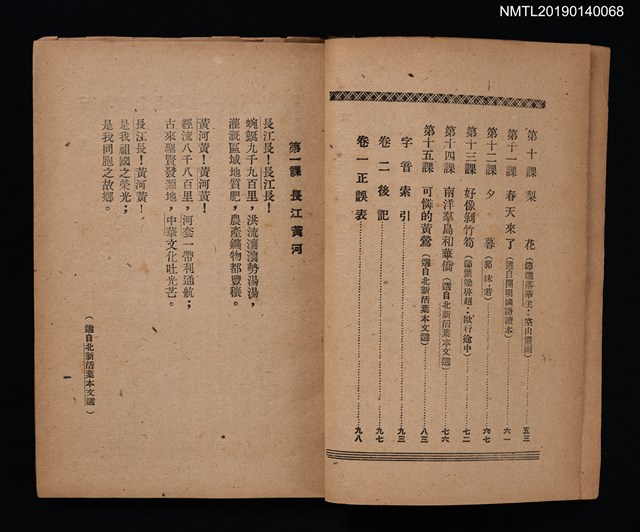 NMTL20190140068
第十課 梨花（節選落華生：空山靈雨）………五三
第十一課 春天來了（選自開明國語讀本）………六一
第十二課 夕暮（郭沫若）………六七
第十三課 好像剝竹筍（節選梁啓超：歐行途中）………七二
第十四課 南洋羣島和華僑（選自北新活葉本文選）………七六
第十五課 可憐的黃鶯（選自北新活葉本文選）………八三
字音索引………九三
卷二後記………九七
卷一正誤表………九八
第一課 長江黃河
長江長！長江長！
蜿蜒九千九百里，洪流瀼瀼勢湯湯，
灌溉區域地質肥，農產鑛物都豐穰。
黃河黃！黃河黃！
經流八千八百里，河套一帶利通航；
古來聖賢發源地，中華文化吐光芒。
長江長！黃河黃！
是我祖國之榮光；
是我同胞之故鄉。
（選自北新活葉本文選）
一